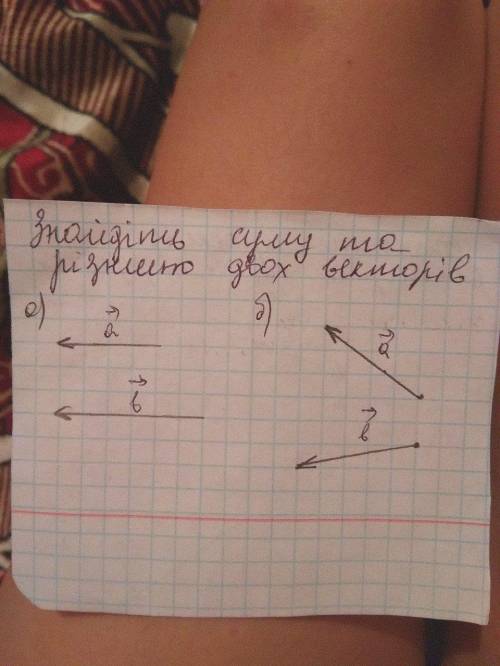 Знайдіть суму та
різницю двох векторів
а) б)
a⃗ a⃗
b⃗ b⃗